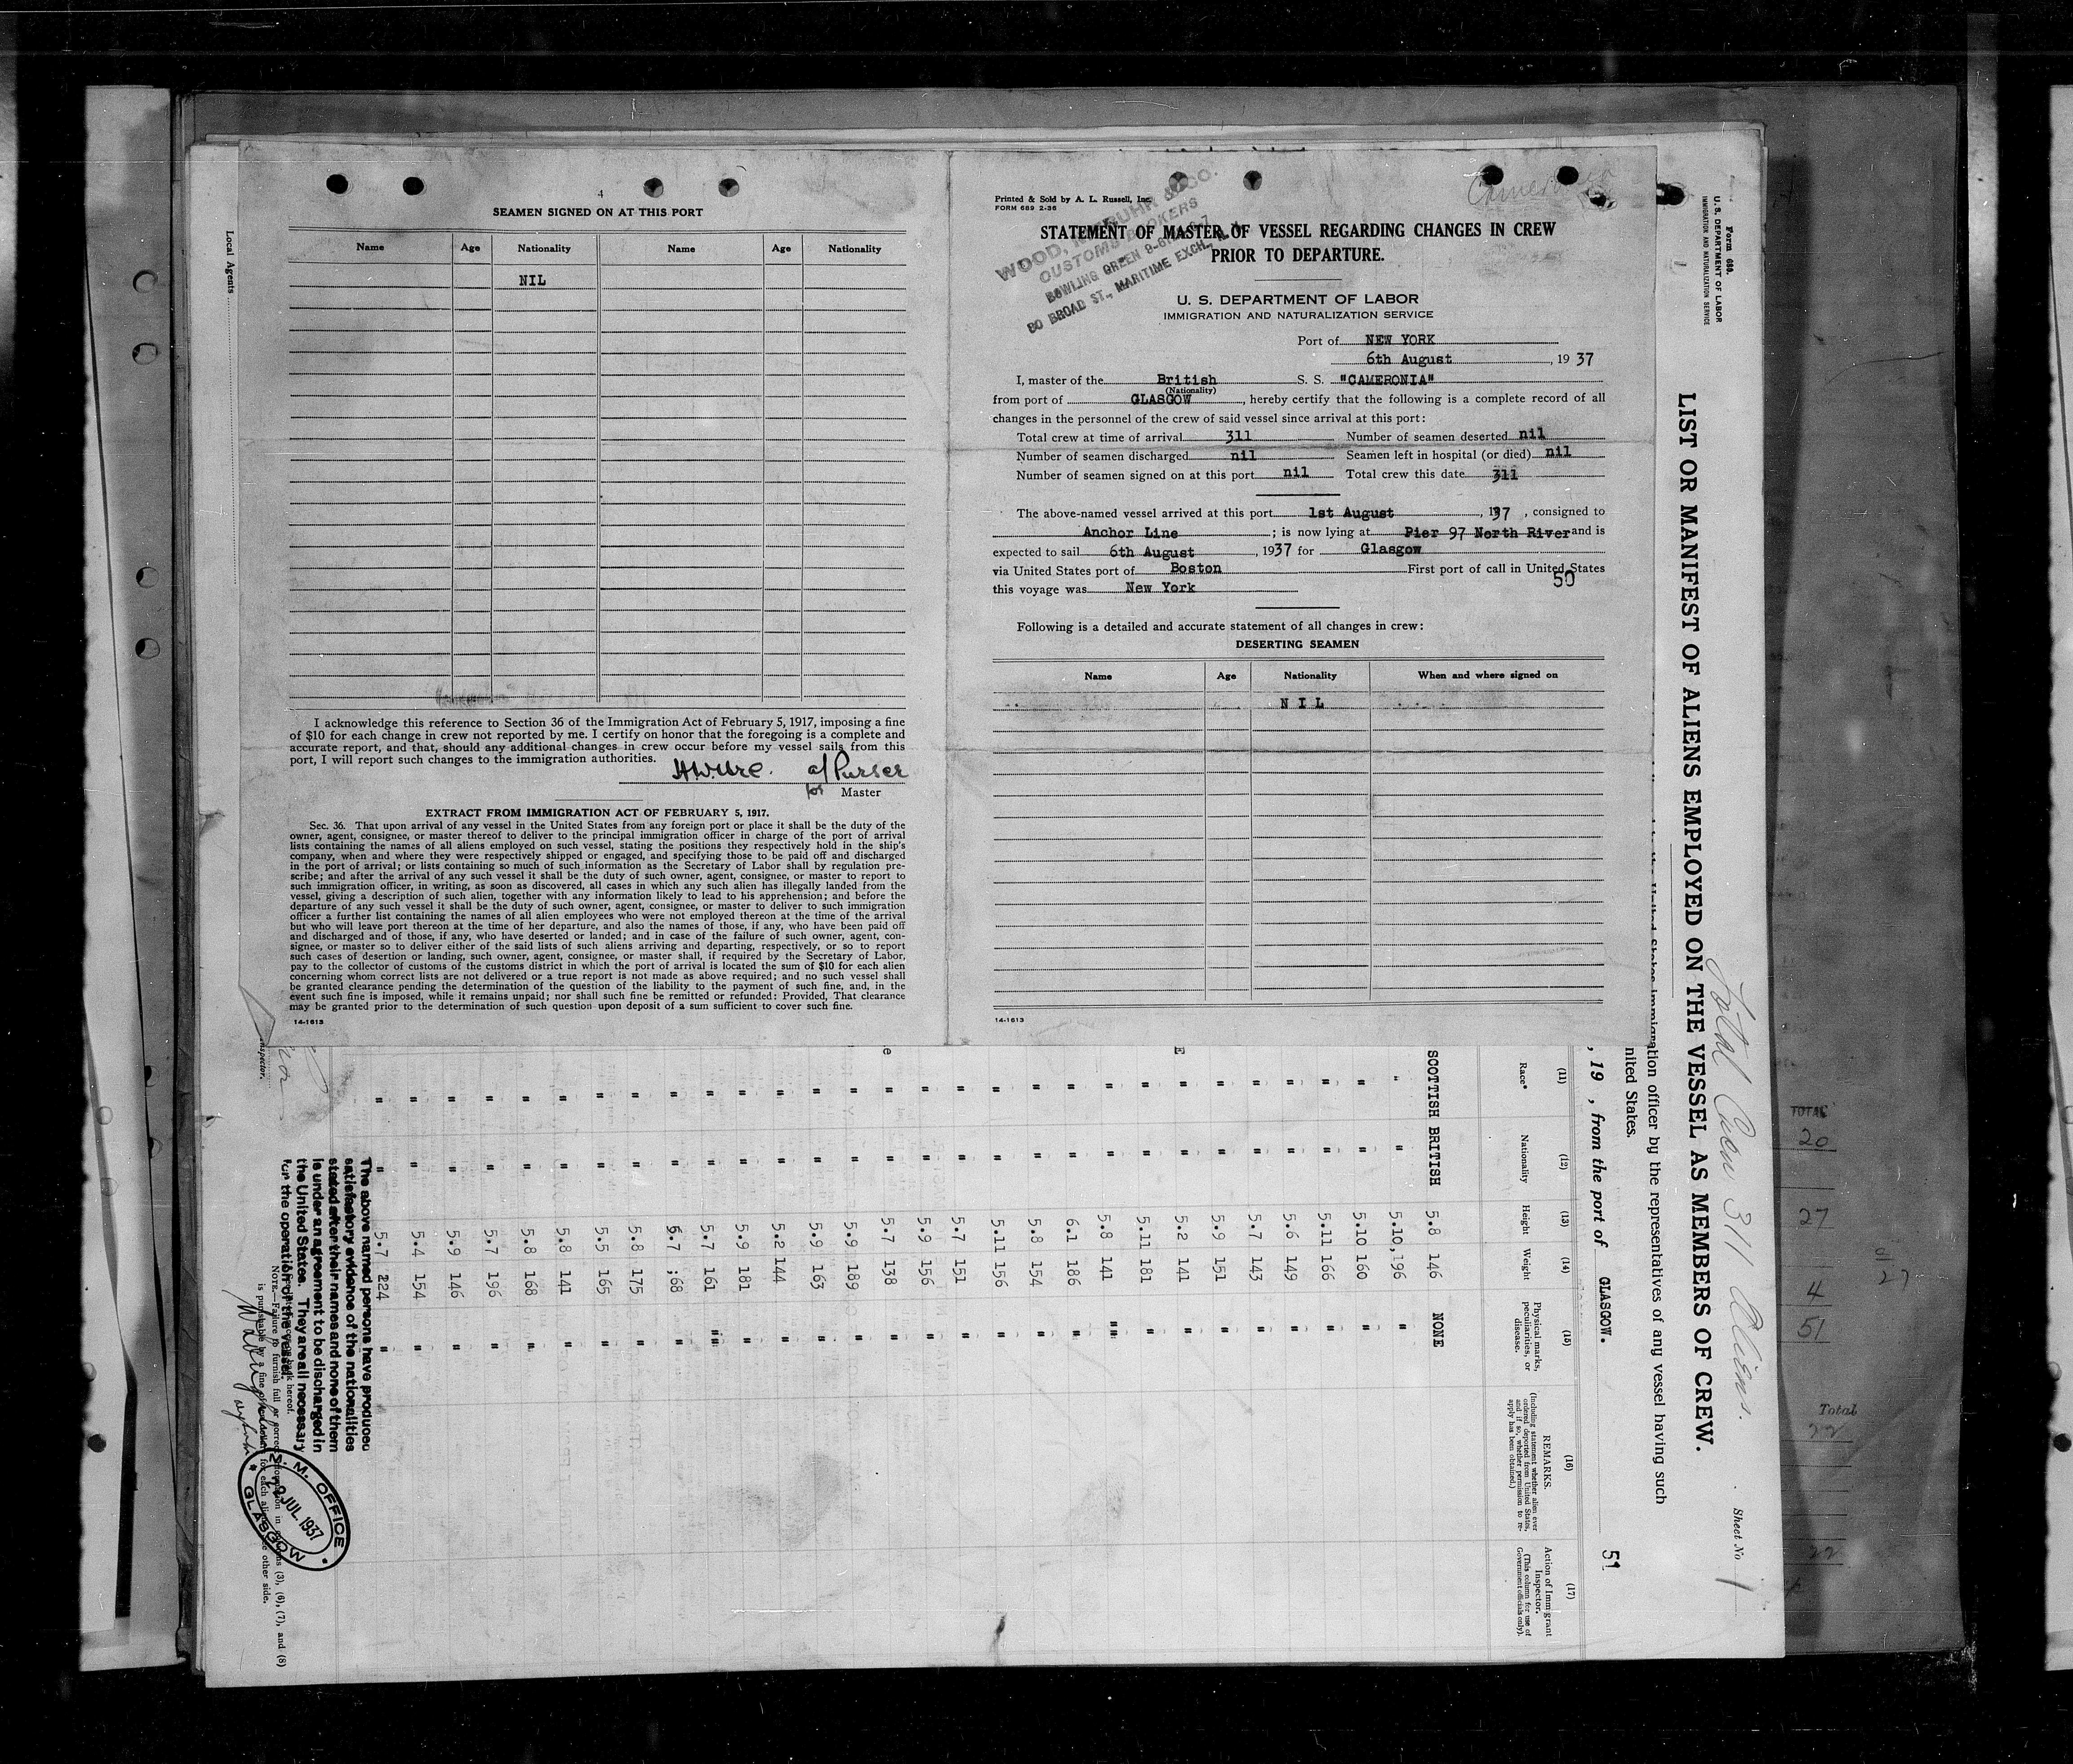 4
SEAMEN SIGNED ON AT THIS PORT
Name Age Nationality Name Age Nationality
NIL
I acknowledge this reference to Section 36 of the Immigration Act of February 5, 1917, imposing a fine
of $10 for each change in crew not reported by me. I certify on honor that the foregoing is a complete and
accurate report, and that, should any additional changes in crew occur before my vessel sails from this
port, I will report such changes to the immigration authorities.
a/Purser
for Master
EXTRACT FROM IMMIGRATION ACT OF FEBRUARY 5, 1917.
Sec. 36. That upon arrival of any vessel in the United States from any foreign port or place it shall be the duty of the
owner, agent, consignee, or master thereof to deliver to the principal immigration officer in charge of the port of arrival
lists containing the names of all aliens employed on such vessel, stating the positions they respectively hold in the ship's
company, when and where they were respectively shipped or engaged, and specifying those to be paid off and discharged
in the port of arrival; or lists containing so much of such information as the Secretary of Labor shall by regulation pre-
scribe; and after the arrival of any such vessel it shall be the duty of such owner, agent, consignee, or master to report to
such immigration officer, in writing, as soon as discovered, all cases in which any such alien has illegally landed from the
vessel, giving a description of such alien, together with any information likely to lead to his apprehension; and before the
departure of any such vessel it shall be the duty of such owner, agent, consignee, or master to deliver to such immigration
officer a further list containing the names of all alien employees who were not employed thereon at the time of the arrival
but who will leave port thereon at the time of her departure, and also the names of those, if any, who have been paid off
and discharged and of those, if any, who have deserted or landed; and in case of the failure of such owner, agent, con-
signee, or master so to deliver either of the said lists of such aliens arriving and departing, respectively, or so to report
such cases of desertion or landing, such owner, agent, consignee, or master shall, if required by the Secretary of Labor,
pay to the collector of customs of the customs district in which the port of arrival is located the sum of $10 for each alien
concerning whom correct lists are not delivered or a true report is not made as above required; and no such vessel shall
be granted clearance pending the determination of the question of the liability to the payment of such fine, and, in the
event such fine is imposed, while it remains unpaid; nor shall such fine be remitted or refunded: Provided, That clearance
may be granted prior to the determination of such question upon deposit of a sum sufficient to cover such fine.
14-1613
Local Agents
Printed & Sold by A. L. Russell, Inc.
FORM 689 2-36
CUSTOMS BROKERS
BOWLING GREEN
80 BROAD ST., MARITIME EXCH., N.Y.
STATEMENT OF MASTER OF VESSEL REGARDING CHANGES IN CREW
PRIOR TO DEPARTURE.
U. S. DEPARTMENT OF LABOR
IMMIGRATION AND NATURALIZATION SERVICE
Port of NEW YORK
6th August, 19 37
I, master of the British S. S. "CAMERONIA"
(Nationality)
from port of GLASGOW, hereby certify that the following is a complete record of all
changes in the personnel of the crew of said vessel since arrival at this port:
Total crew at time of arrival 311 Number of seamen deserted nil
Number of seamen discharged nil Seamen left in hospital (or died) nil
Number of seamen signed on at this port nil Total crew this date 311
The above-named vessel arrived at this port 1st August, 1937, consigned to
Anchor Line; is now lying at Pier 97 North River and is
expected to sail 6th August, 1937 for Glasgow
via United States port of Boston First port of call in United States
50
this voyage was New York
Following is a detailed and accurate statement of all changes in crew:
DESERTING SEAMEN
Name Age Nationality When and where signed on
NIL
14-1613
Form 689.
U. S. DEPARTMENT OF LABOR
IMMIGRATION AND NATURALIZATION SERVICE
Total Crew 311 Aliens.
Sheet No 1
LIST OR MANIFEST OF ALIENS EMPLOYED ON THE VESSEL AS MEMBERS OF CREW.
immigration officer by the representatives of any vessel having such
nited States.
, 19 , from the port of GLASGOW.
51
(11) (12) (13) (14) (15) (16) (17)
Race* Nationality Height Weight Physical marks, peculiarities, or disease.
REMARKS.
(Including statement whether alien ever ordered deported from United States, and if so, whether permission to re-apply has been obtained.)
Action of Immigrant Inspector.
(This column for use of Government officials only).
SCOTTISH BRITISH 5.8 146 NONE
" " 5.10 196 "
" " 5.10 160 "
" " 5.11 166 "
" " 5.6 149 "
" " 5.7 143 "
" " 5.9 151 "
" " 5.2 141 "
" " 5.11 181 "
" " 5.8 141 "
" " 6.1 186 "
" " 5.8 154 "
" " 5.11 156 "
" " 5.7 151 "
" " 5.9 156 "
" " 5.7 138 "
" " 5.9 189 "
" " 5.9 163 "
" " 5.2 144 "
" " 5.9 181 "
" " 5.7 161 "
" " 5.7 168 "
" " 5.8 175 "
" " 5.5 165 "
" " 5.8 141 "
" " 5.8 168 "
" " 5.7 196 "
" " 5.9 146 "
" " 5.4 154 "
" " 5.7 224 "
The above named persons have produced
satisfactory evidence of the nationalities
stated after their names and none of them
is under an agreement to be discharged in
the United States. They are all necessary
for the operation of the vessel.
M. M. OFFICE
JUL 1937
GLASGOW
TOTAL
20
27
4
51
Total
22
22